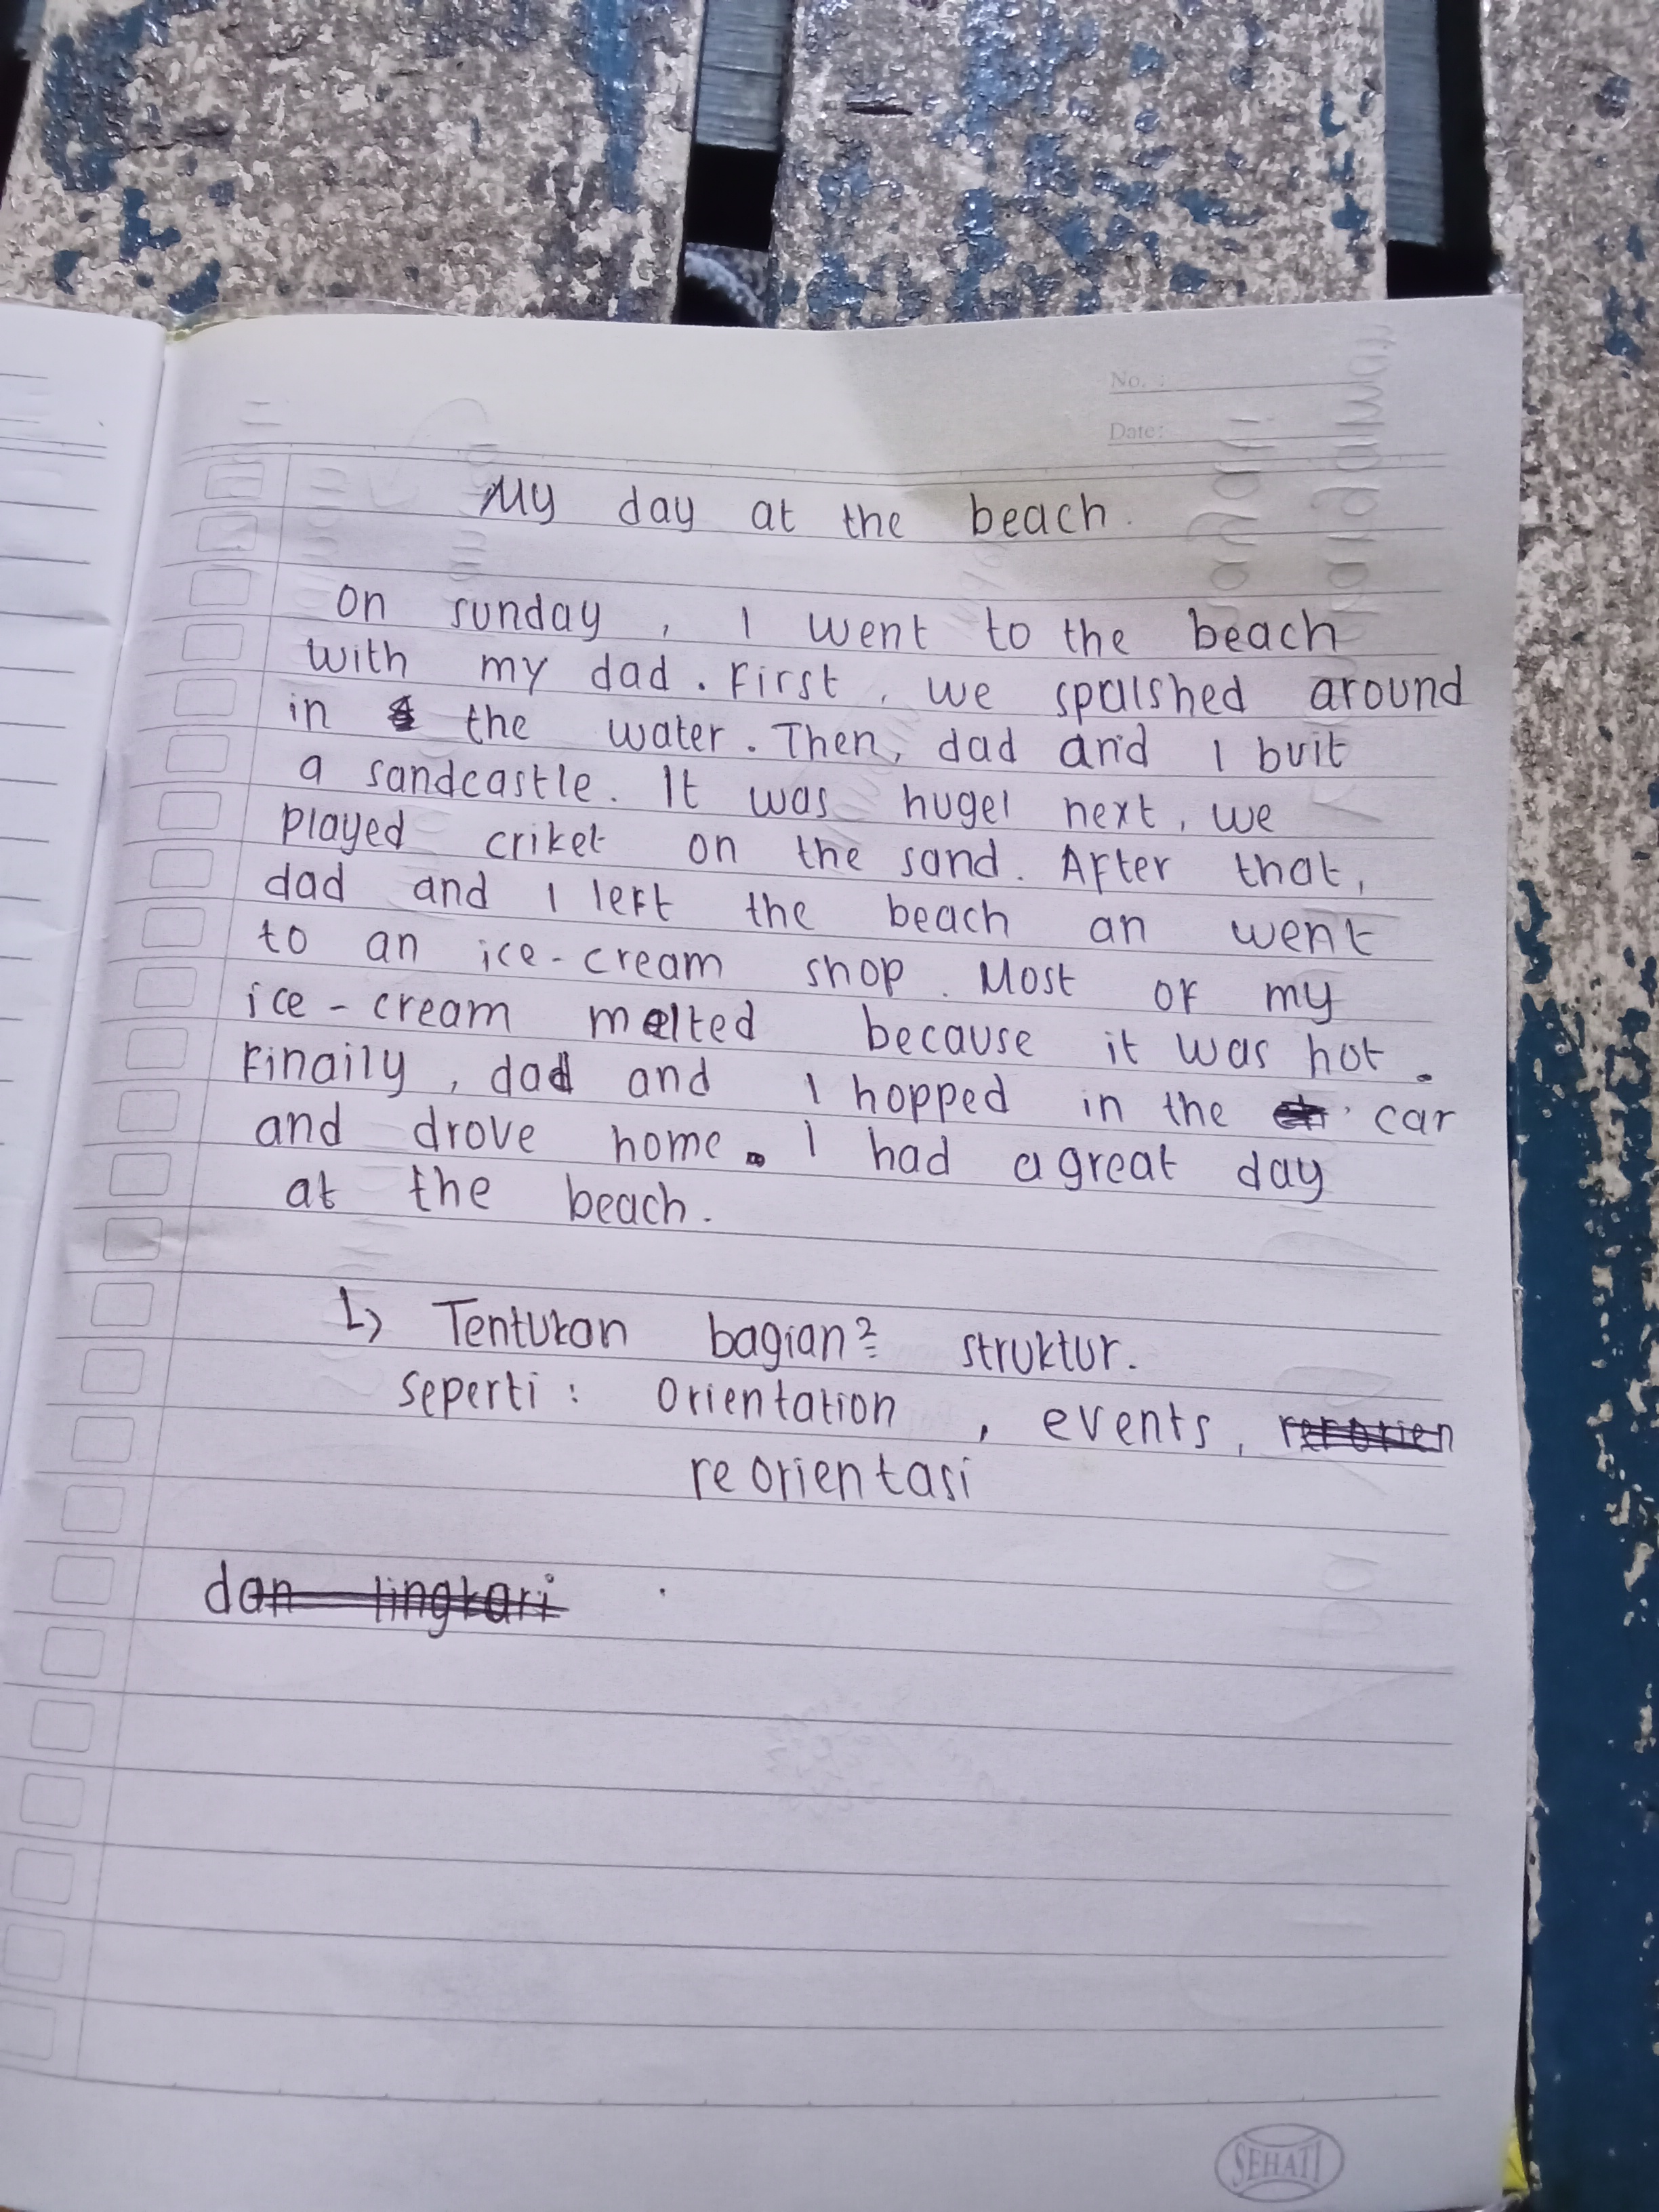 No. :
Date:
My day at the beach.
on sunday, I went to the beach
with my dad. First, we spalshed around
in the water. Then, dad and I buit
a sandcastle. It was huge! next, we
played criket on the sand. After that,
dad and I left the beach an went
to an ice-cream shop. Most of my
ice-cream melted because it was hot.
Finaily, dad and I hopped in the car
and drove home. I had a great day
at the beach.
↳ Tentukan bagian2 struktur.
seperti : Orientation, events,
reorientasi
dan lingkari
SEHATI